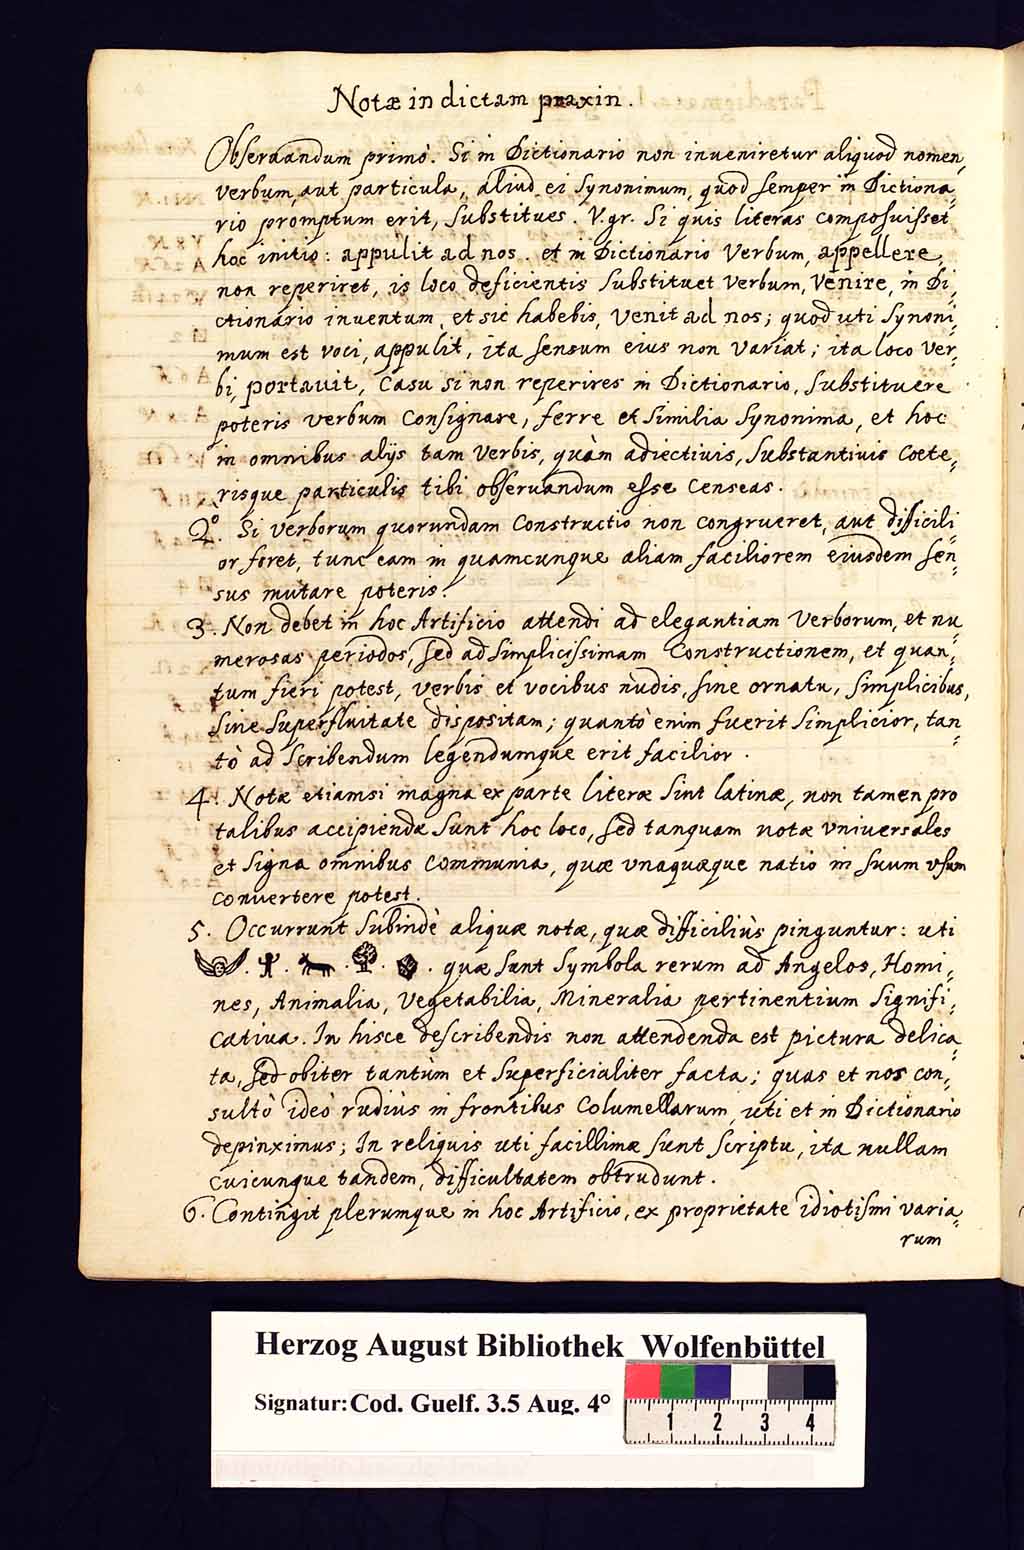 Notæ in dictam praxin.
Obseruandum primò. Si in Dictionario non inueniretur aliquod nomen,
verbum, aut particula, aliud ei synonimum, quod semper in Dictiona„
rio promptum erit, substitues. V.gr. Si quis literas composuisset
hoc initio: appulit ad nos. et in Dictionario Verbum, appellere,
non reperiret, is loco deficientis substituet verbum, Venire, in Di„
ctionario inuentum, et sic habebis, Venit ad nos; quod uti synoni„
mum est voci, appulit, ita sensum eius non variat; ita loco ver„
bi, portauit, Casu si non reperires in Dictionario, substituere
poteris verbum Consignare, ferre et similia synonima, et hoc
in omnibus alijs tam verbis, quàm adiectiuis, substantiuis coete„
risque particulis tibi obseruandum esse censeas.
2º. Si verborum quorundam constructio non congrueret, aut difficili„
or foret, tunc eam in quamcunque aliam faciliorem eiusdem sen„
sus mutare poteris.
3. Non debet in hoc Artificio attendi ad elegantiam verborum, et nu„
merosas periodos, sed ad simplicissimam Constructionem, et quan„
tum fieri potest, verbis et vocibus nùdis, sine ornatu, simplicibus,
sine superfluitate dispositam; quantò enim fuerit simplicior, tan„
tò ad scribendum legendumque erit facilior.
4. Notæ etiamsi magna ex parte literæ sint latinæ, non tamen pro
talibus accipiendæ sunt hoc loco, sed tanquam notæ vniuersales
et signa omnibus communia, quæ vnaquæque natio in suum vsum
convertere potest.
5. Occurrunt subindè aliquæ notæ, quæ difficiliùs pinguntur: uti
. . . . . quæ sunt symbola rerum ad Angelos, Homi„
nes, Animalia, Vegetabilia, Mineralia pertinentium signifi„
cativa. In hisce describendis non attendenda est pictura delica„
ta, sed obiter tantùm et superficialiter facta; quas et nos con„
sultò ideò rudiùs in frontibus Columellarum, uti et in Dictionario
depinximus; In reliquis uti facillimæ sunt scriptu, ita nullam
cuicunque tandem, difficultatem obtrudunt.
6. Contingit plerumque in hoc Artificio, ex proprietate idiotismi varia„
rum
Herzog August Bibliothek Wolfenbüttel
Signatur: Cod. Guelf. 3.5 Aug. 4°
1 2 3 4